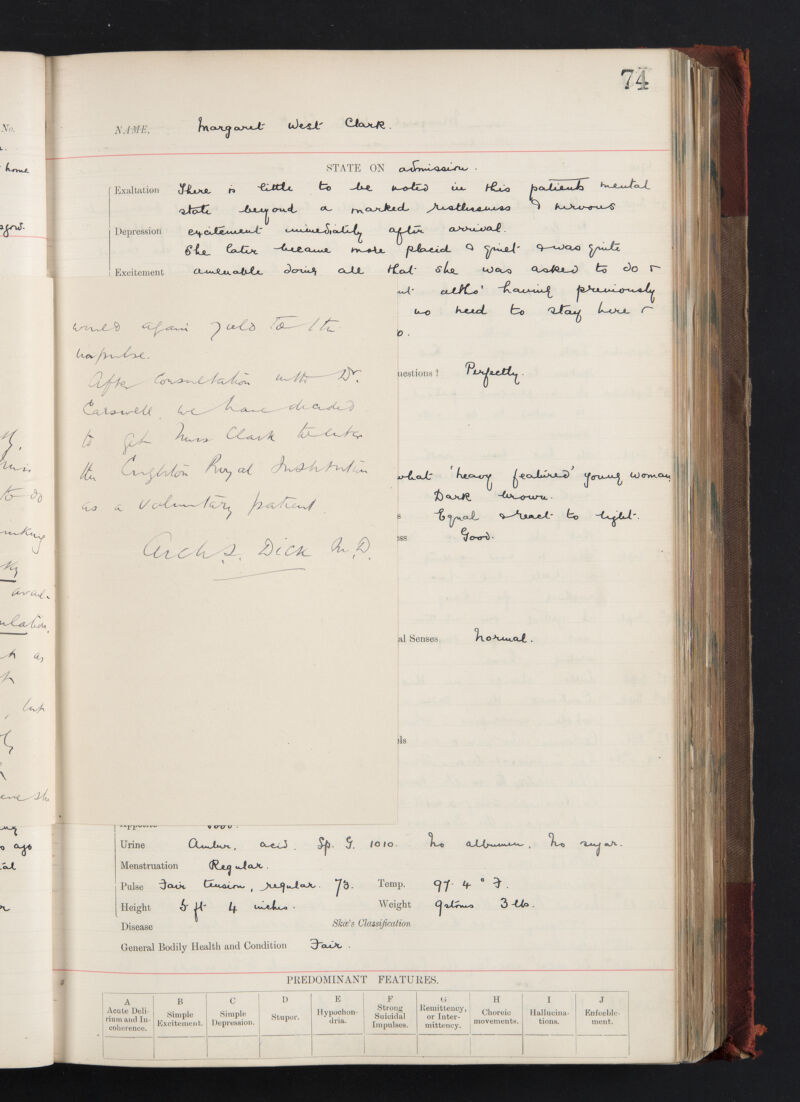 74
No.
home
NAME, Margaret West Clark.
STATE ON admission.
Exaltation There is little to be noted in this patients mental
state beyond a marked restlessness & nervous
Depression excitement immediately after arrival.
She later became more placid & quiet & was quite
Excitement amenable doing all that she was asked to do &
altho' having previously
no need to stay here &
would again yield to the
impulse.
uestions? Perfectly.
After consultation with Dr.
Carswell we have decided
to get Miss Clark to enter
the Crighton Royal Institution
as a voluntary patient.
Arch. S. Dick M.D.
what 'heavy featured' young woman
Dark brown.
Equal & react to light.
ess Good.
al Senses Normal.
to do
but
ago
Urine Amber, acid. Sp. G. 1010. No albumen, No sugar.
Menstruation Regular.
Pulse Fair tension, regular. 73. Temp. 97.4° F.
Height 5 ft 4 inches. Weight 9 stones 3 lbs.
Disease Skae's Classification
General Bodily Health and Condition Fair.
PREDOMINANT FEATURES.
A B C D E F G H I J
Acute Delirium and Incoherence. Simple Excitement. Simple Depression. Stupor. Hypochondria. Strong Suicidal Impulses. Remittency, or Intermittency. Choreic movements. Hallucinations. Enfeeblement.